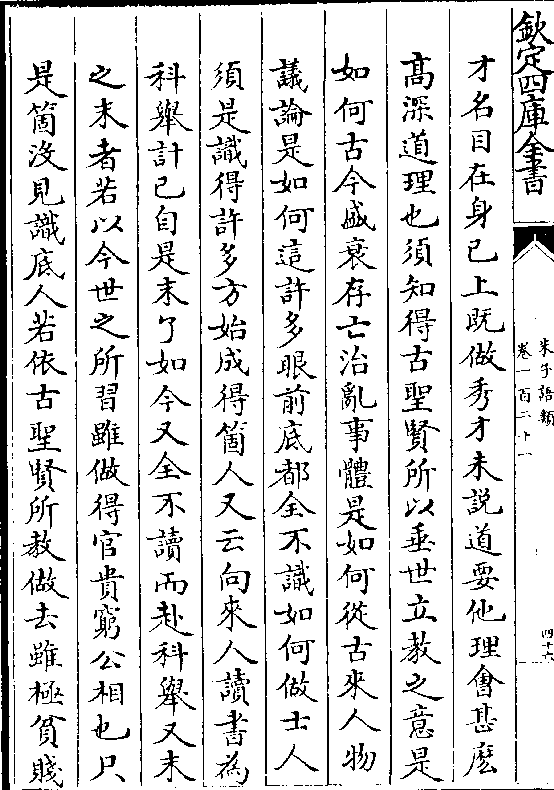 欽定四庫全書
朱子語類
卷一百二十一
四十六
才名目在身已上既做秀才未説道要他理會甚麽
高深道理也須知得古聖賢所以垂世立教之意是
如何古今盛衰存亡治亂事體是如何從古來人物
議論是如何這許多眼前底都全不識如何做士人
須是識得許多方始成得箇人又云向來人讀書為
科舉計已自是末了如今又全不讀而赴科舉又末
之末者若以今世之所習雖做得官貴窮公相也只
是箇沒見識底人若依古聖賢所教做去雖極貧賤